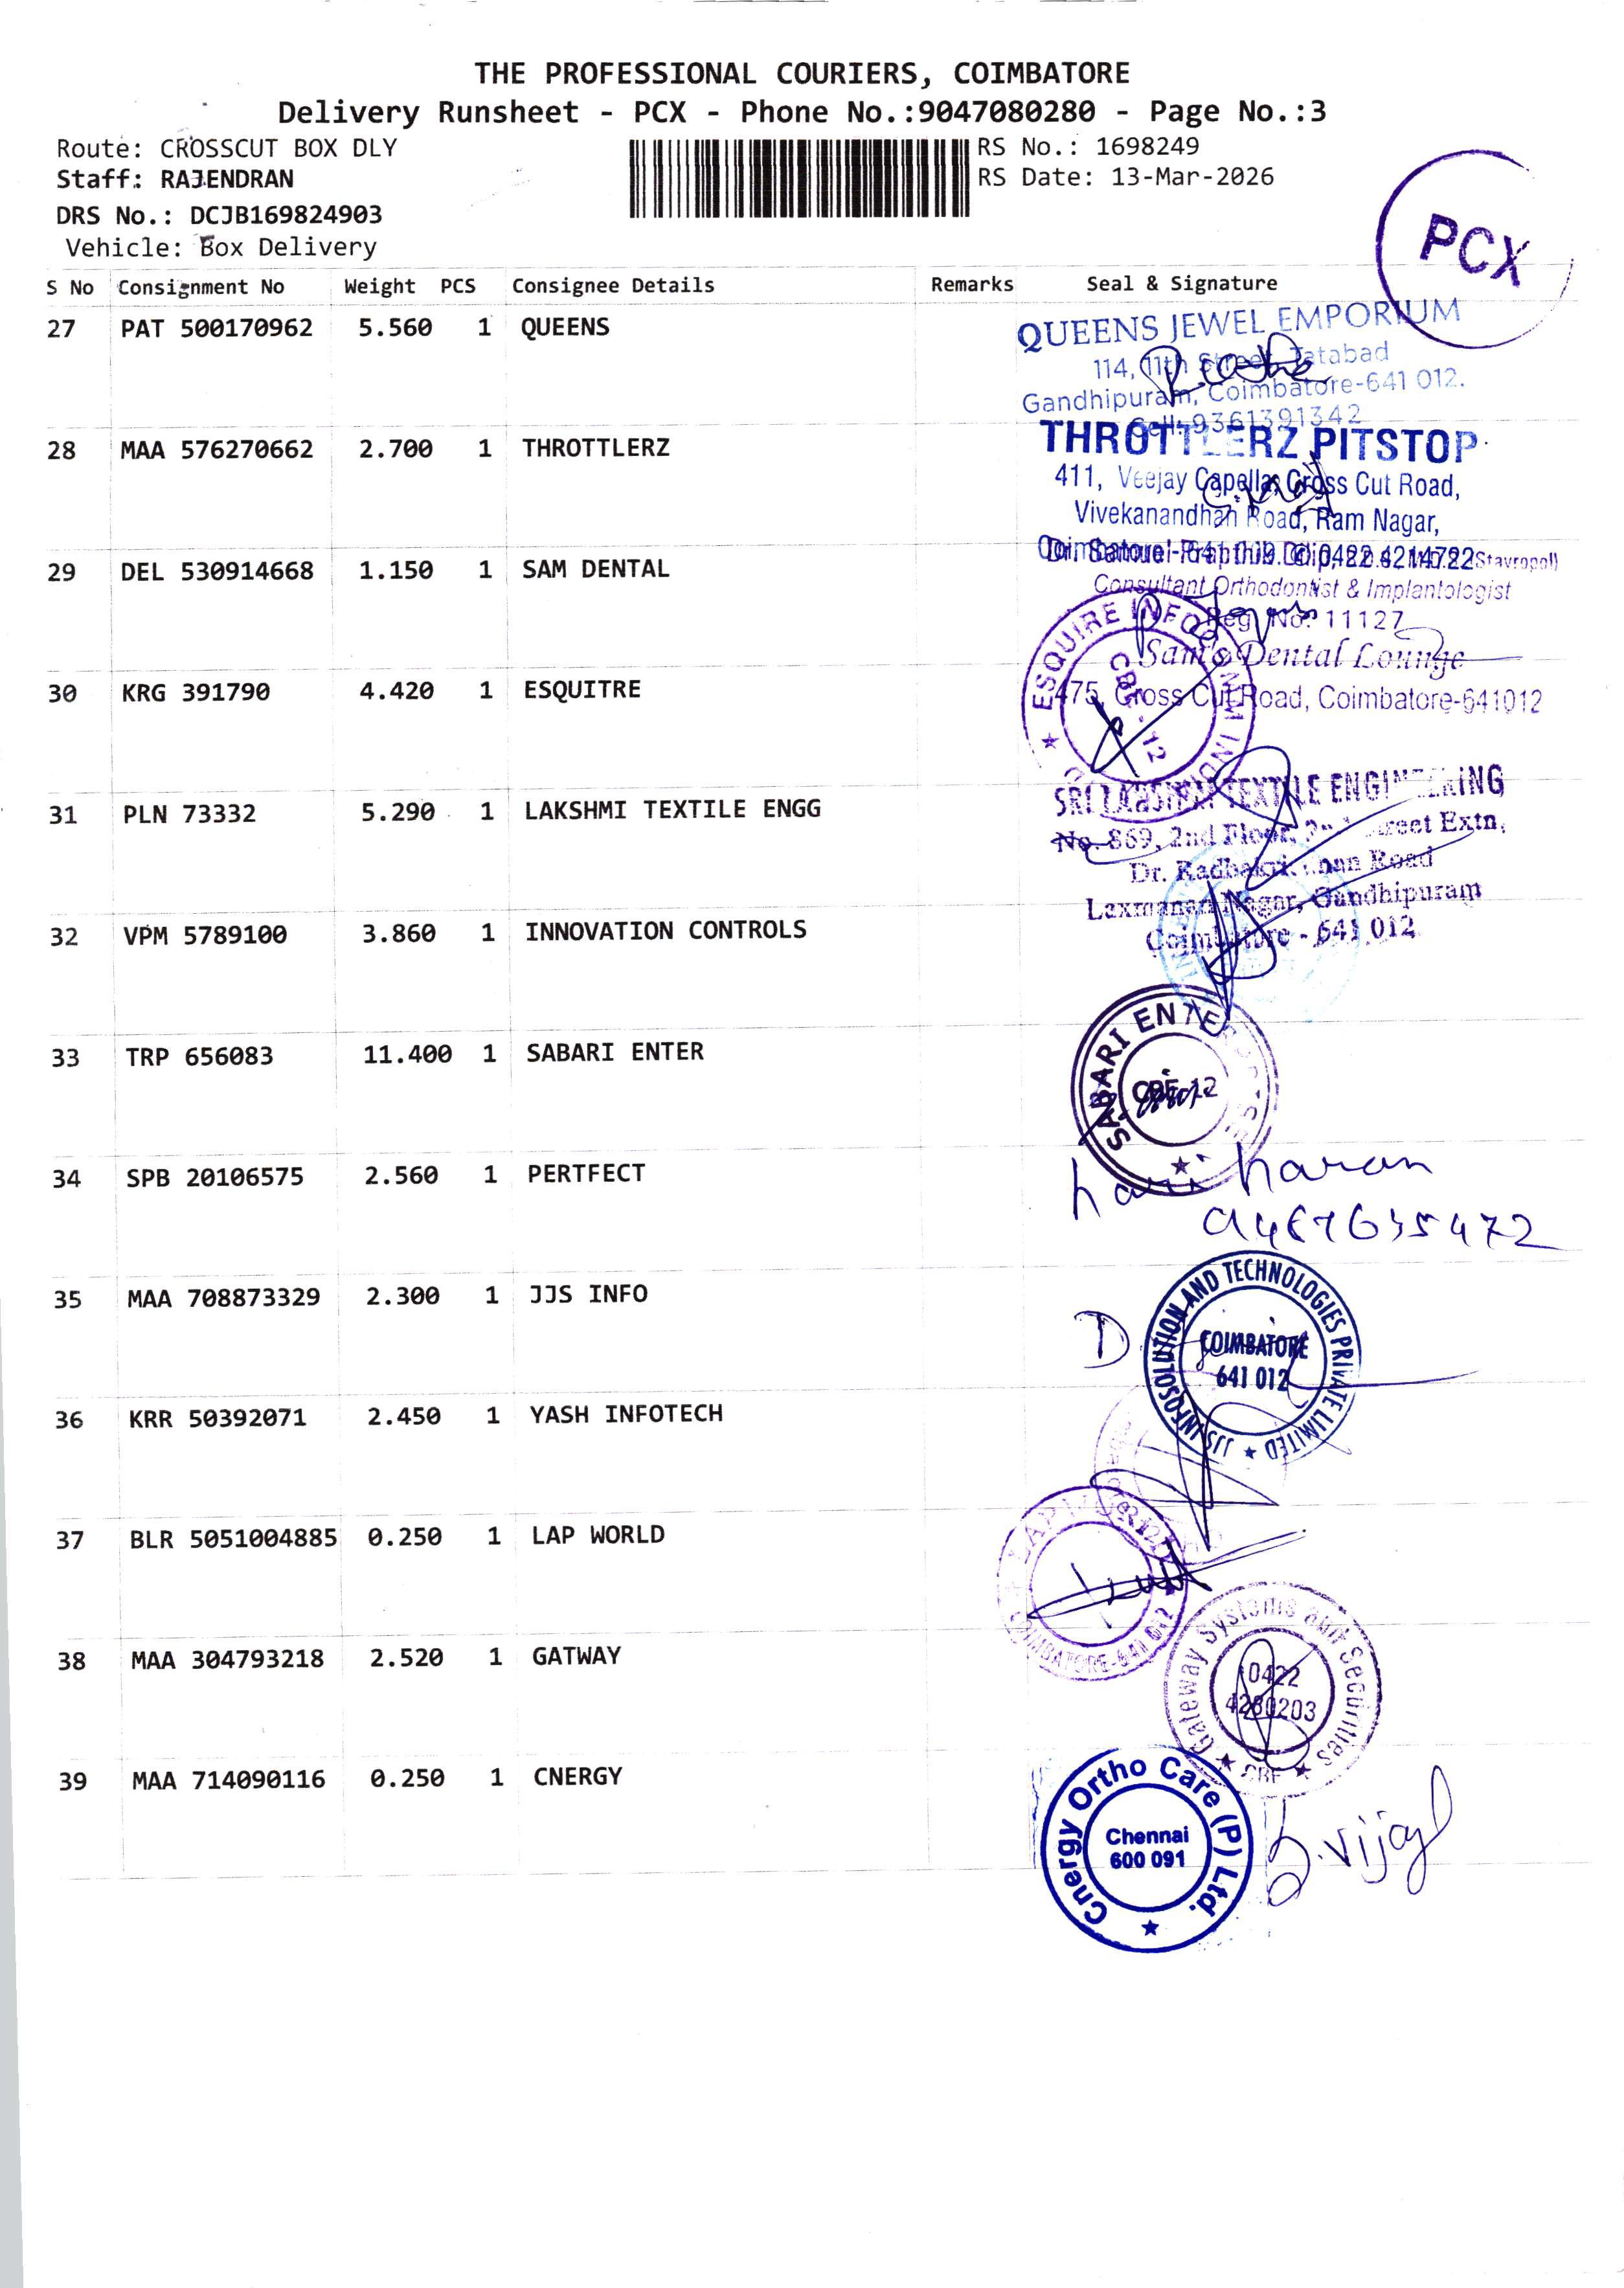 THE PROFESSIONAL COURIERS, COIMBATORE
Delivery Runsheet - PCX - Phone No.:9047080280 - Page No.:3
Route: CROSSCUT BOX DLY
Staff: RAJENDRAN
DRS No.: DCJB169824903
Vehicle: Box Delivery
RS No.: 1698249
RS Date: 13-Mar-2026
PCX
S No Consignment No Weight PCS Consignee Details Remarks Seal & Signature
27 PAT 500170962 5.560 1 QUEENS
QUEENS JEWEL EMPORIUM
114, 11th Street, Tatabad
Gandhipuram, Coimbatore-641 012.
Cell: 9361391342
28 MAA 576270662 2.700 1 THROTTLERZ
THROTTLERZ PITSTOP
411, Veejay Capella, Cross Cut Road,
Vivekanandhan Road, Ram Nagar,
29 DEL 530914668 1.150 1 SAM DENTAL
Consultant Orthodontist & Implantologist
Reg. No: 11127
Sam's Dental Lounge
475, Cross Cut Road, Coimbatore-641012
30 KRG 391790 4.420 1 ESQUITRE
ESQUIRE
CBE - 12
31 PLN 73332 5.290 1 LAKSHMI TEXTILE ENGG
SRI LAKSHMI TEXTILE ENGINEERING
No. 869, 2nd Floor, Street Extn,
Dr. Road
Laxmanan Nagar, Gandhipuram
Coimbatore - 641 012
32 VPM 5789100 3.860 1 INNOVATION CONTROLS
33 TRP 656083 11.400 1 SABARI ENTER
SABARI ENTE
CBE-12
34 SPB 20106575 2.560 1 PERTFECT
hari haran
35 MAA 708873329 2.300 1 JJS INFO
JJS INFOSOLUTION AND TECHNOLOGIES PRIVATE LIMITED
COIMBATORE
641 012
36 KRR 50392071 2.450 1 YASH INFOTECH
37 BLR 5051004885 0.250 1 LAP WORLD
COIMBATORE-641 012
38 MAA 304793218 2.520 1 GATWAY
Gateway Systems and Securities
0422
4280203
CBE
39 MAA 714090116 0.250 1 CNERGY
Cnergy Ortho Care (P) Ltd.
Chennai
600 091
S.Vijay